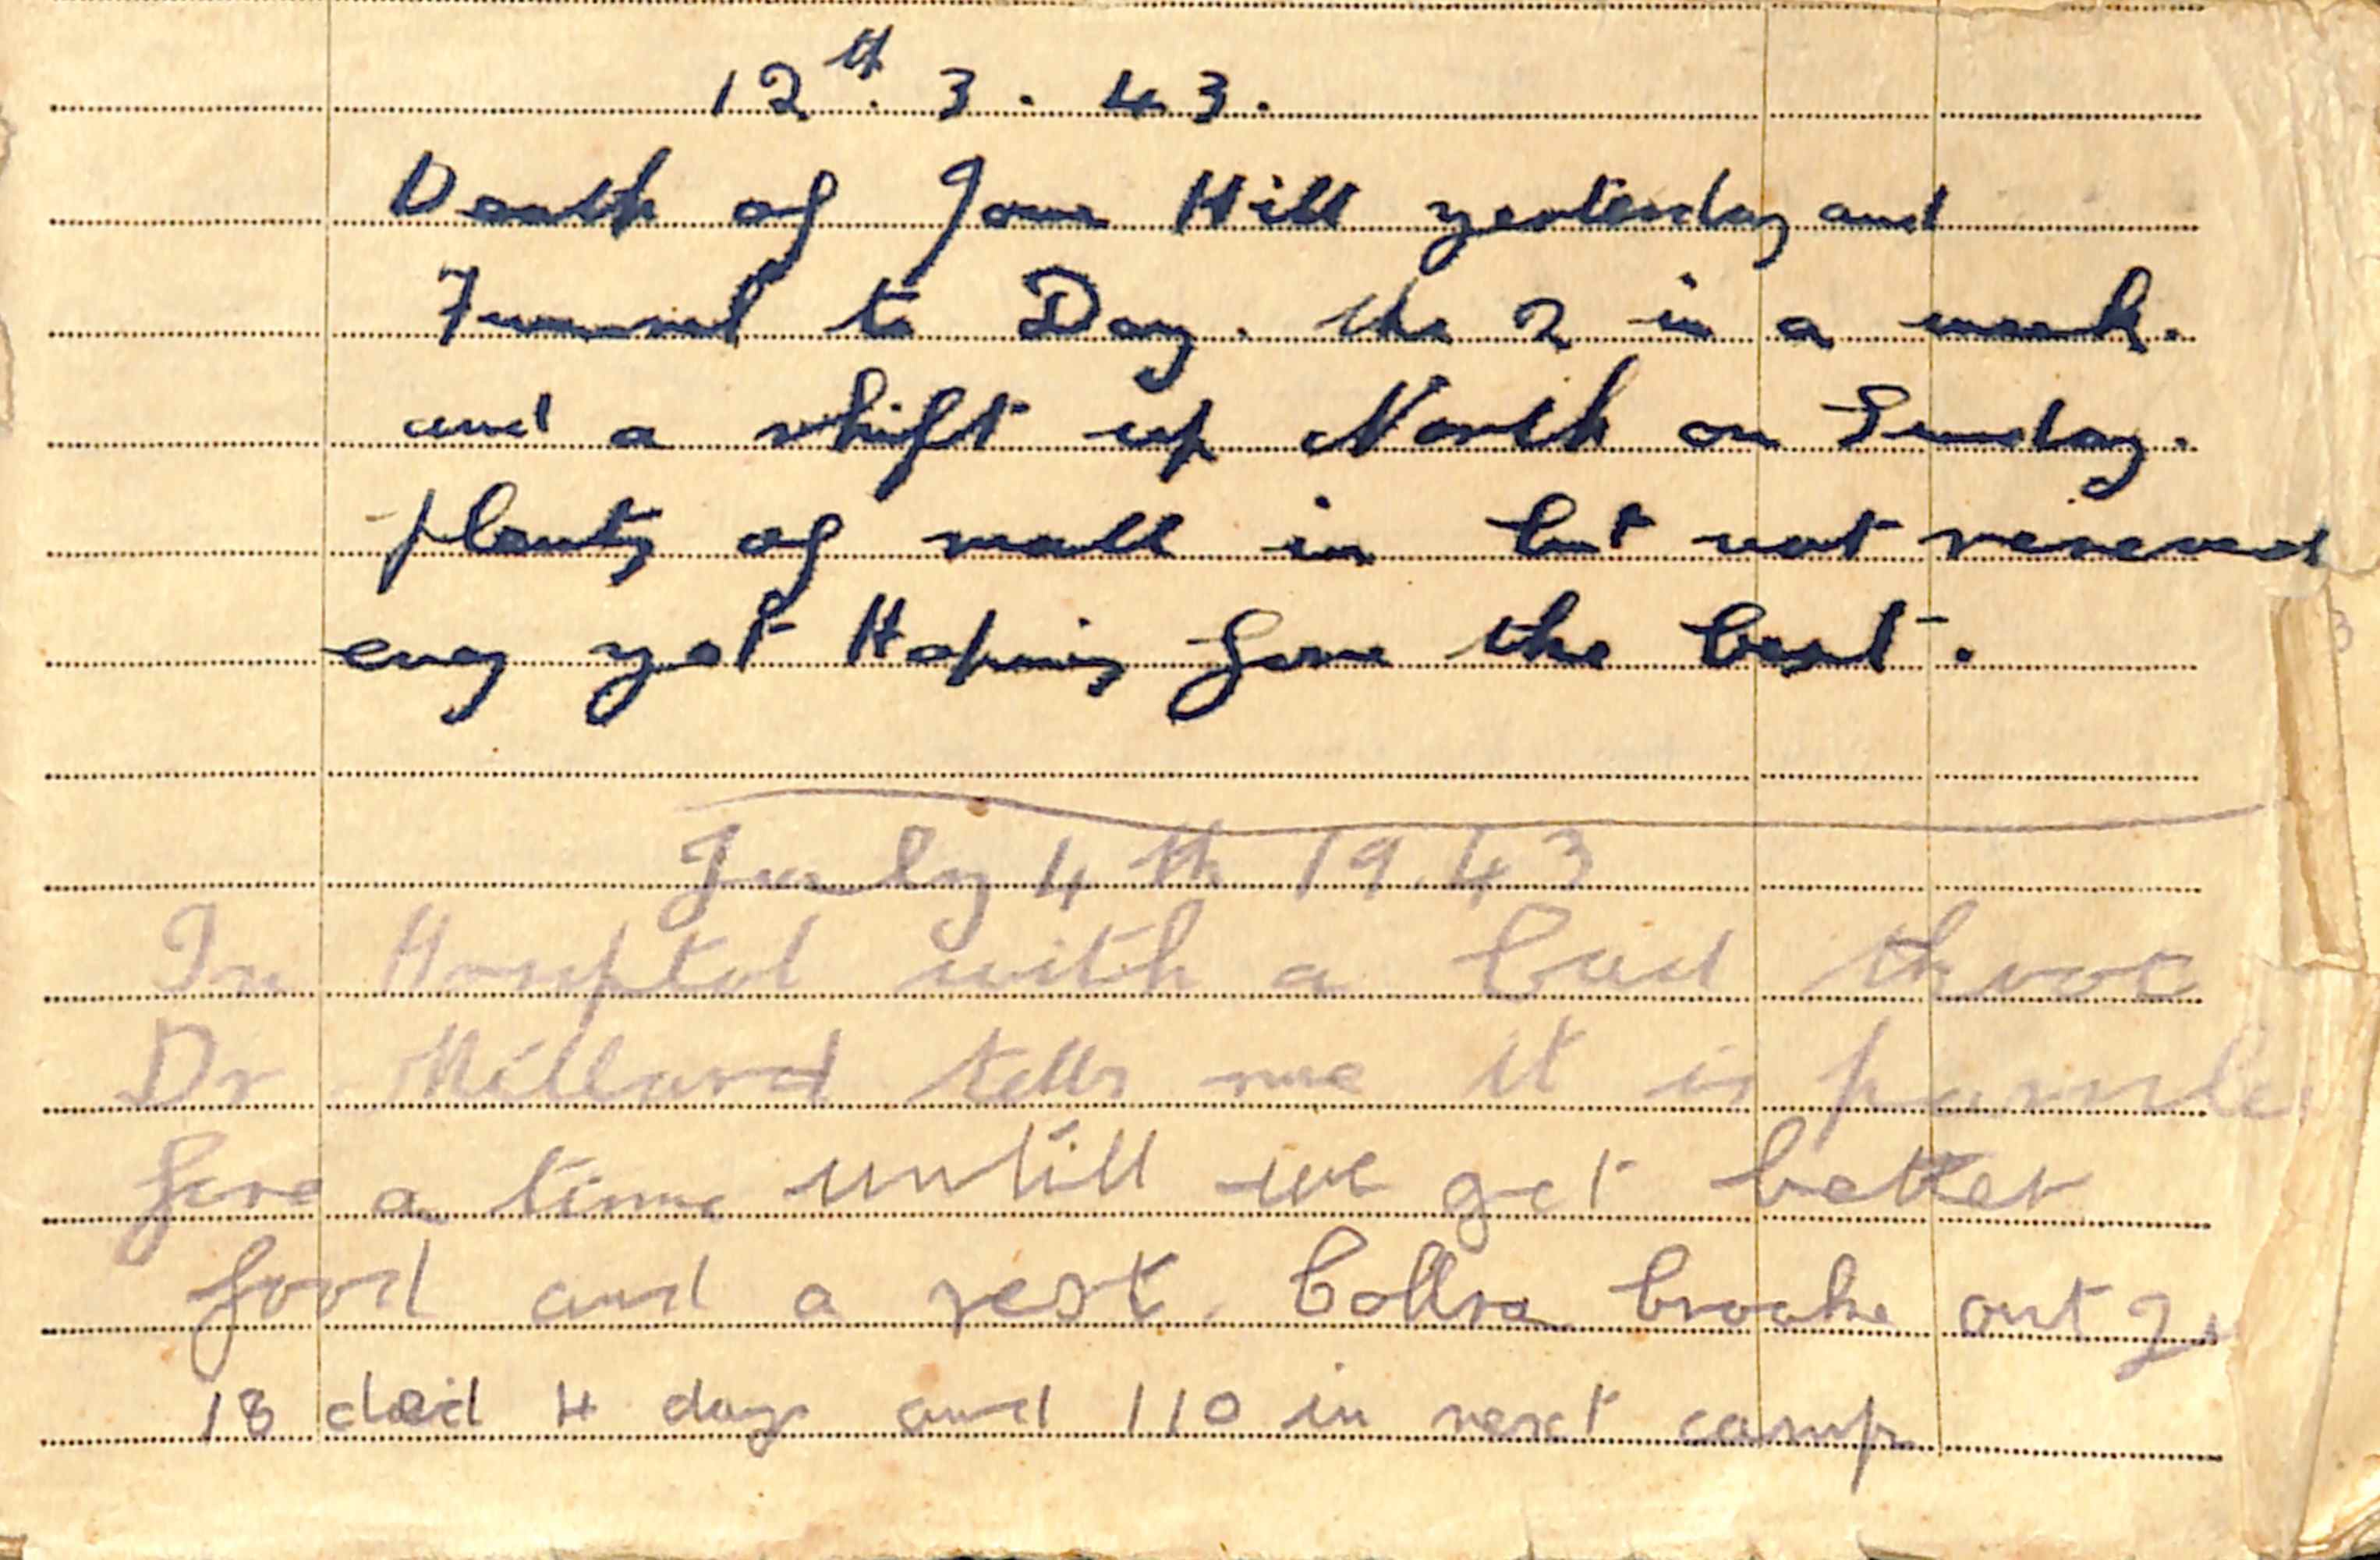 12th. 3. 43.
Death of Jone Hill yesterday and
Funeral to Day. the 2 in a week.
and a shift up North on Sunday.
plenty of mall in but not reseved
eny yet Hoping fore the best.
July 4th 1943
In Hospital with a bad throt
Dr Millard tells me it is
fore a time untill we get better
food and a rest. Collra brooke out
18 died 4 days and 110 in next camp